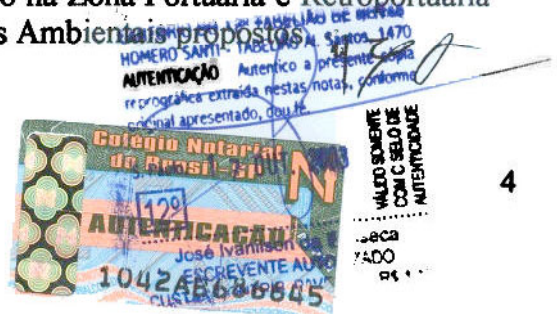 o na Zona Portuária e Retroportuária
s Ambientais propostos
12º TABELIÃO DE NOTAS
HOMERO SANTI - TABELIÃO Al. Santos, 1470
AUTENTICAÇÃO Autentico a presente cópia
reprográfica extraída nestas notas, conforme
original apresentado, dou fé.
Colégio Notarial
do Brasil-SP
OUT
N
12º
AUTENTICAÇÃO
José Ivanilson
ESCREVENTE
1042AB686845
VÁLIDO SOMENTE
COM O SELO DE
AUTENTICIDADE
4